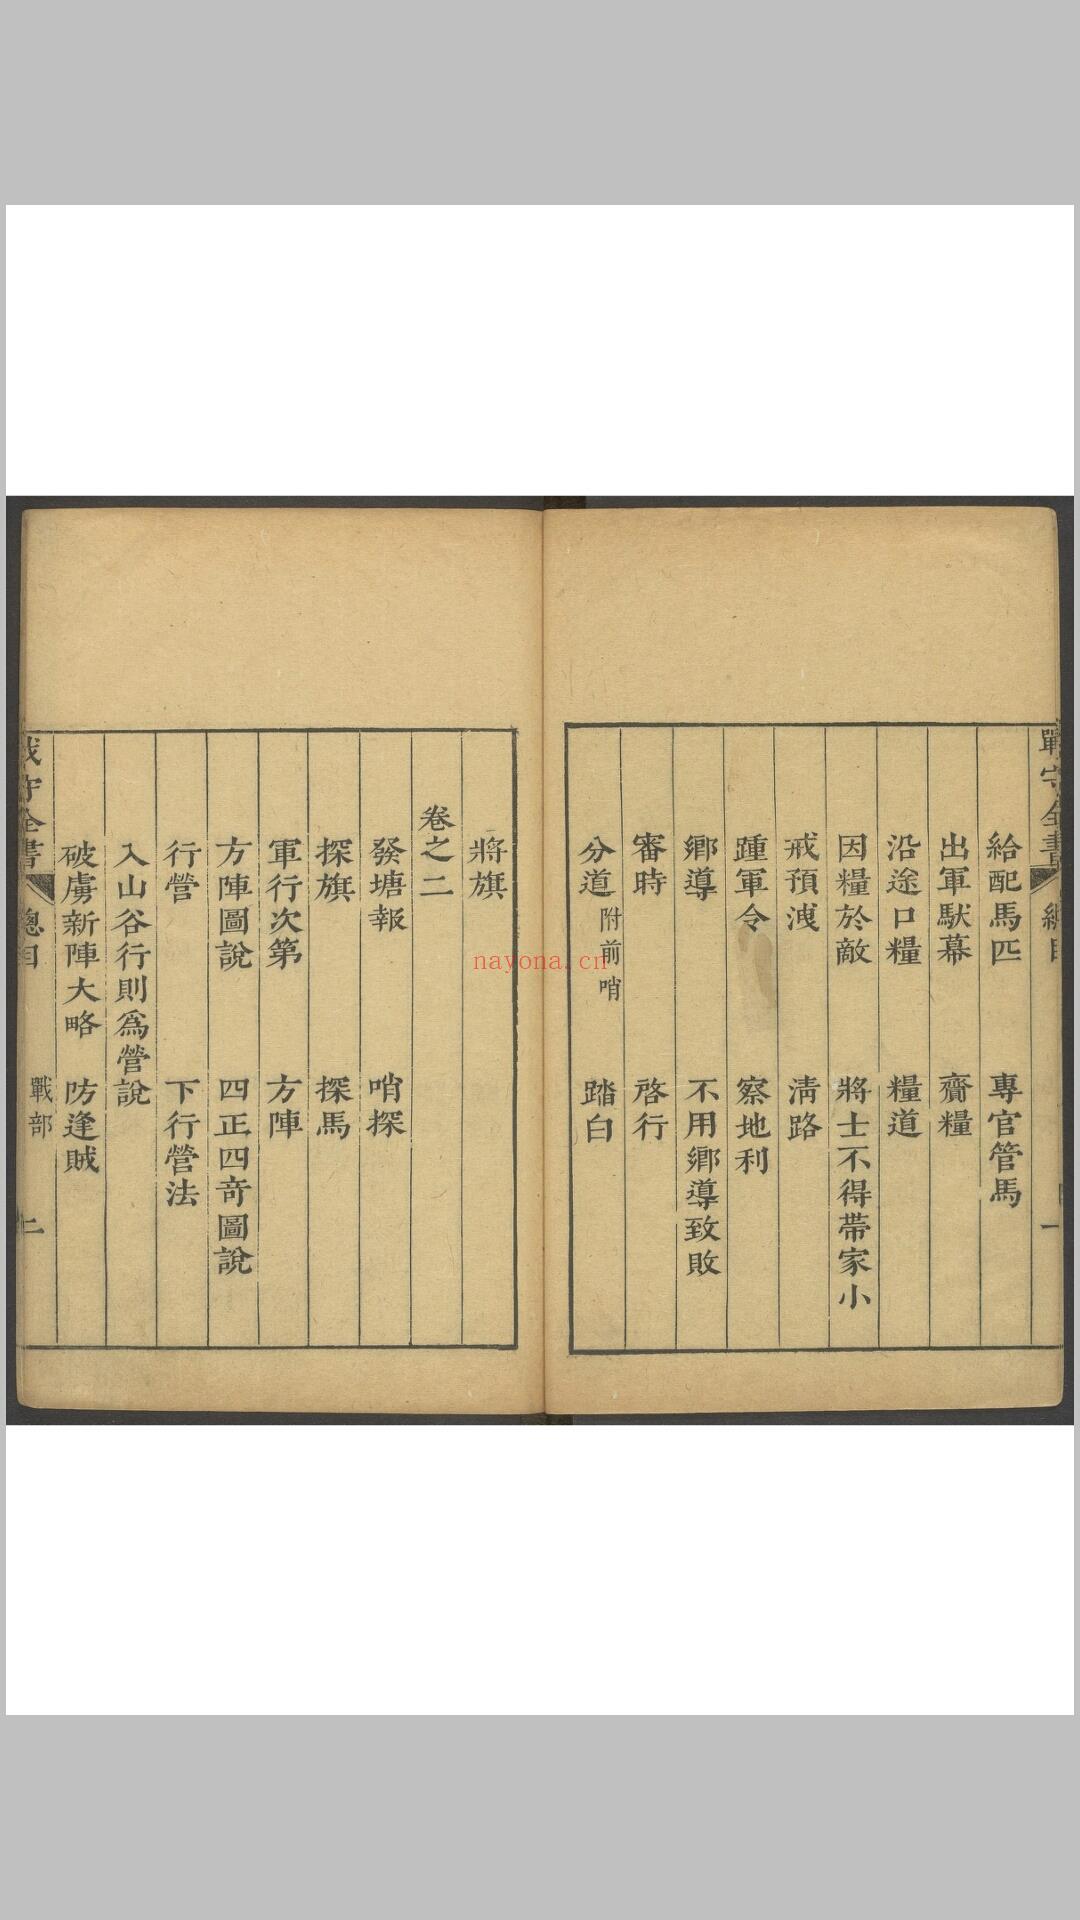 戰守全書 總目 一
給配馬匹 專官管馬
出軍馱幕 齎糧
沿途口糧 糧道
因糧於敵 將士不得帶家小
戒預洩 淸路
踵軍令 察地利
鄉導 不用鄉導致敗
審時 啓行
分道 附前哨 踏白
將旗
卷之二
發塘報 哨探
探旗 探馬
軍行次第 方陣
方陣圖說 四正四奇圖說
行營 下行營法
入山谷行則爲營說
破虜新陣大略 防逢賊
戰守全書 總目 戰部 二
nayona.cn